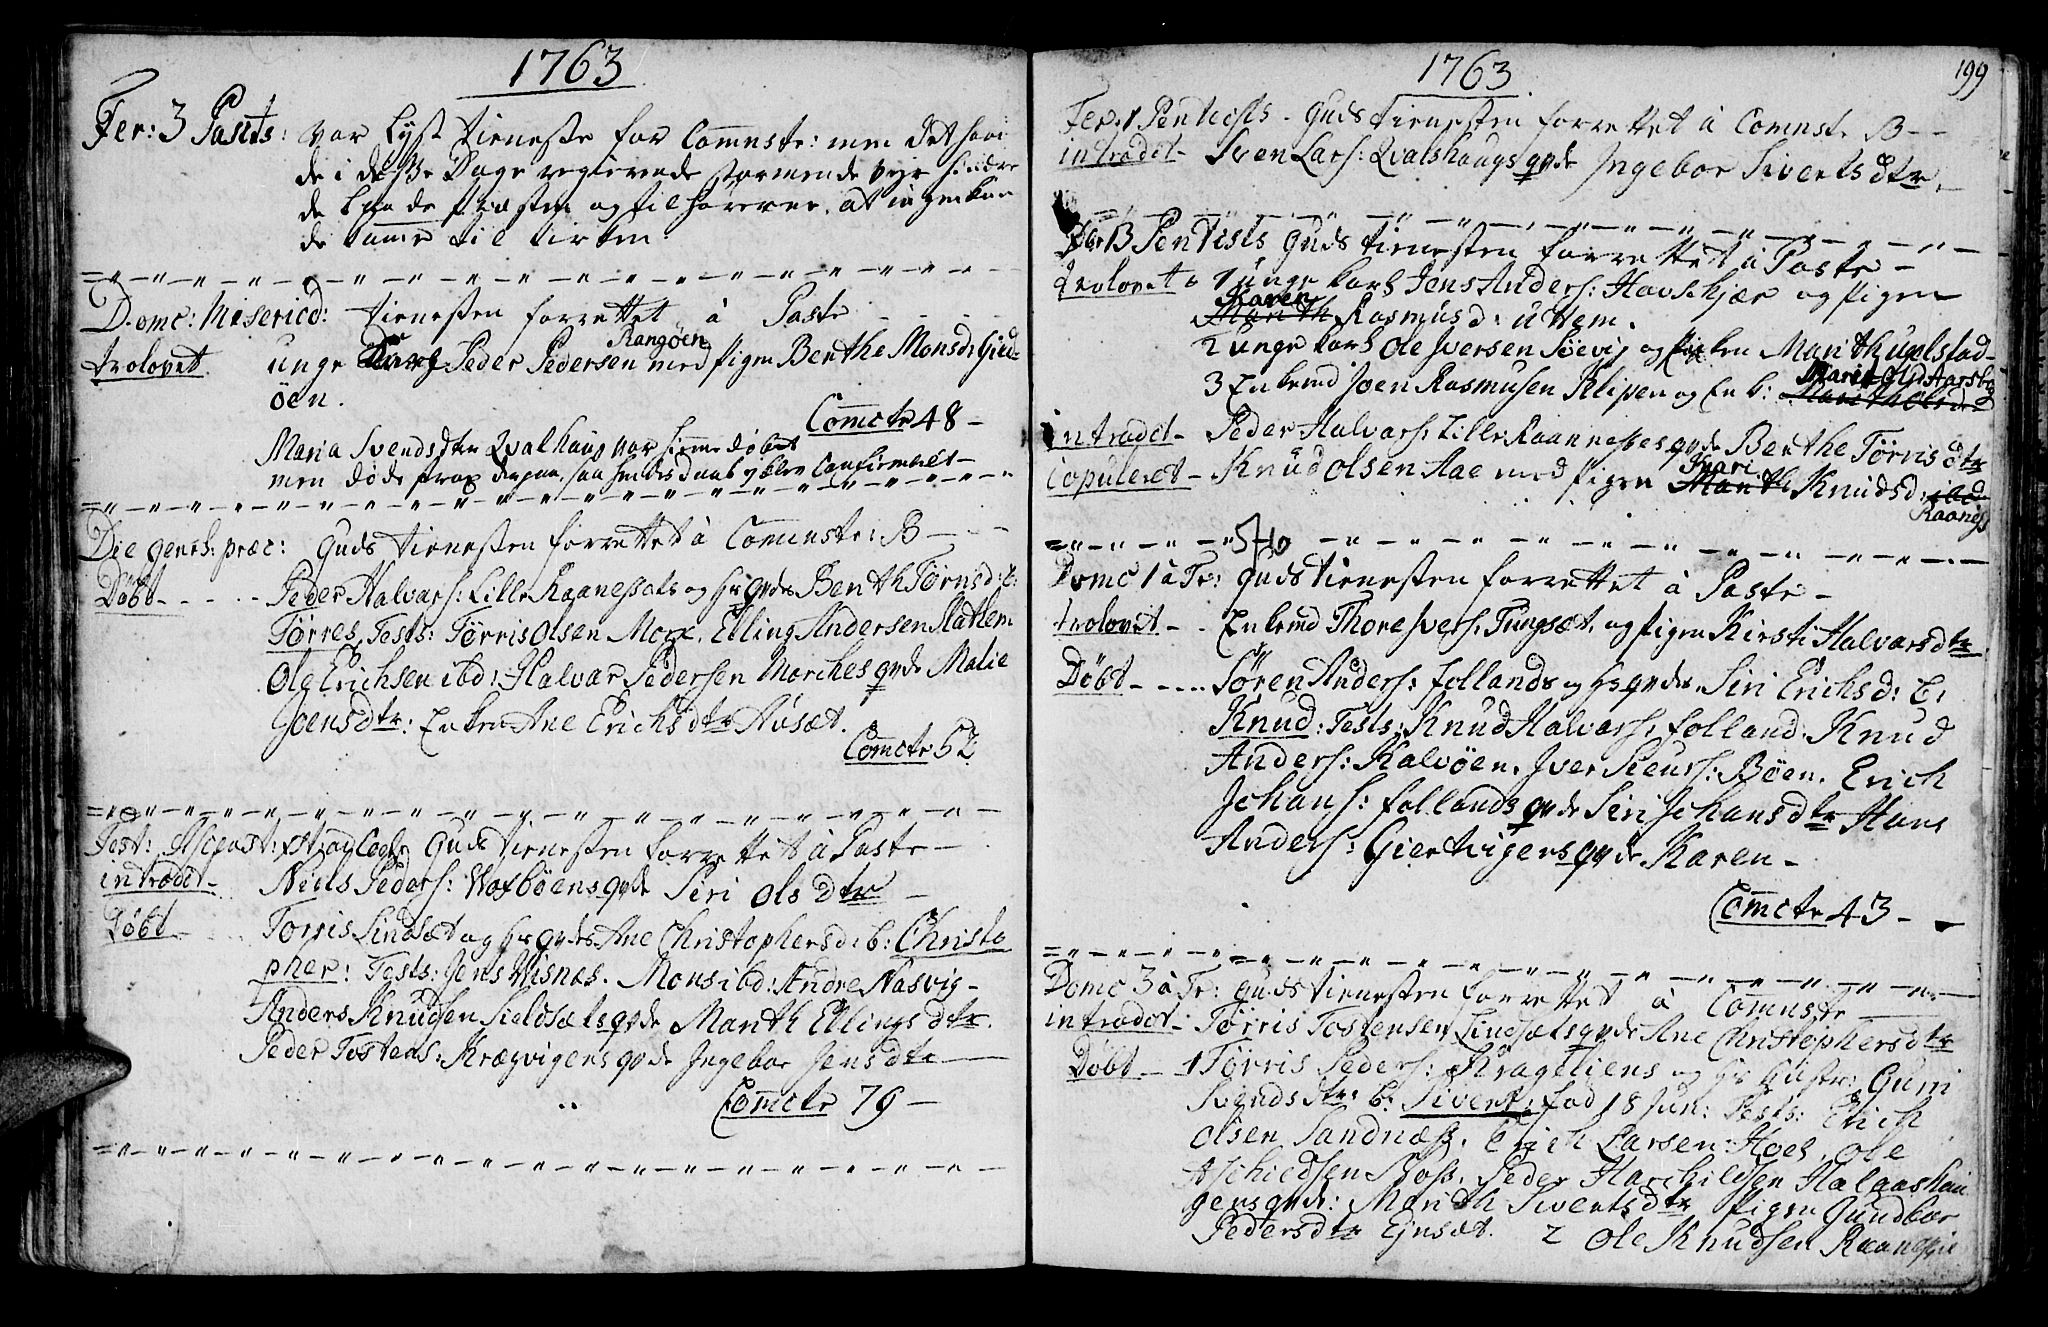 1763
Fer: 3 Pasch: var lyst tieneste for Comnste: men det haar
de i disse Dage regierende stormende vejr hindre
de baade Præsten og tilhörerne, at ingen kun
de komme til Kirken.
Domc: Misericd: tienesten forrettet â Paste
trolovet unge Karl Peder Pedersen Rangöen med pigen Berthe Monsd: Gied-
öen.
Comcte 48 -
Maria Svendsdtr Qvalhaug var hiemedöbt
men döde strax derpaa, saa hendes daab ej blev Confirmeret
Die gener: præc: Guds tienesten forrettet â Comnste: B - -
Döbt - - - - Peder Halvars: Lille Raanessets og hs qvdes Berith Törrisd: b:
Törres, Tests: Törris Olsen More, Elling Andersen Rathem
Ole Erichsen ibd: Halvar Pedersen Morches qvde Malie
Joensdtr: Enken Ane Erichsdtr Aüsæt.
Comcte 52
Fest: Ascens: Guds tienesten forrettet â Paste -
introdct - Niels Peders: Vaxböens qvde Siri Olsdtr -
Döbt - Torris Lindsæt og hs qvdes Ane Christophersd: b: Christo
pher: Tests: Jens Visnæs. Mons ibd: Andre Nasvig -
Anders Knudsen Sieldsæts qvde Marith Ellingsdtr.
Peder Tostens: Krægvigens qvde Ingebor Jensdtr
Comcte 79 -
1763
199
Fer: 1 Pentecsts - Guds tienesten forrettet â Comnst. B - -
introdct - Sven Lars: Qvalshaugs qvde Ingebor Sivertsdtr.
Pentests Guds tienesten forrettet â Paste -
trolovet 1 unge karl Jens Anders: Havskjær og pigen
Karen
Marith Rasmusd: uttem.
2 unge karl Ole Iversen Söevig og Marith ugelstad-
Marit Olsd Aarsbog
3 Enkemd Joen Rasmusen Klipen og Enk: Marith Olsd
introdct - Peder Halvars: Lille Raannesses qvde Berthe Törrisdtr
copuleret - Knud Olsen Aae med pigen
Mari
Marith Knudsd: ibd
Raanes
Domc 1 â Tr: Guds tienesten forrettet â Paste -
trolovet - - Enkemd Thore Ivers: Tungsæt, og pigen Kirsti Halvarsdtr
Döbt - - - - Sören Anders: follands og hs qvdes Siri Erichsd: b:
Knud: Tests: Knud Halvars: folland: Knud
Anders: Kalvöen. Iver Sieurs: Böen. Erich
Johans: follands qvde Siri Johansdtr Hans
Anders: Giertvigens qvde Karen -
Comcte 43 -
Domc 3 â Tr: Guds tienesten forrettet â Comnste
introdct - Törris Tostensen Lindsæts qvde Ane Christophersdtr
Döbt - 1 Törris Peders: Krageliens og hs hustr: Guri
Svendsdtr: b: Sivert: föd 18 Jun: Tests: Erich
Olsen Sandnæss. Erich Larsen Hoel, Ole
Aschildsen Boss. Peder Harchildsen Halaashau
gens qvde: Marith Sivertsdtr pigen Gundbor
Pedersdtr Ejnsæt. 2 Ole Knudsen